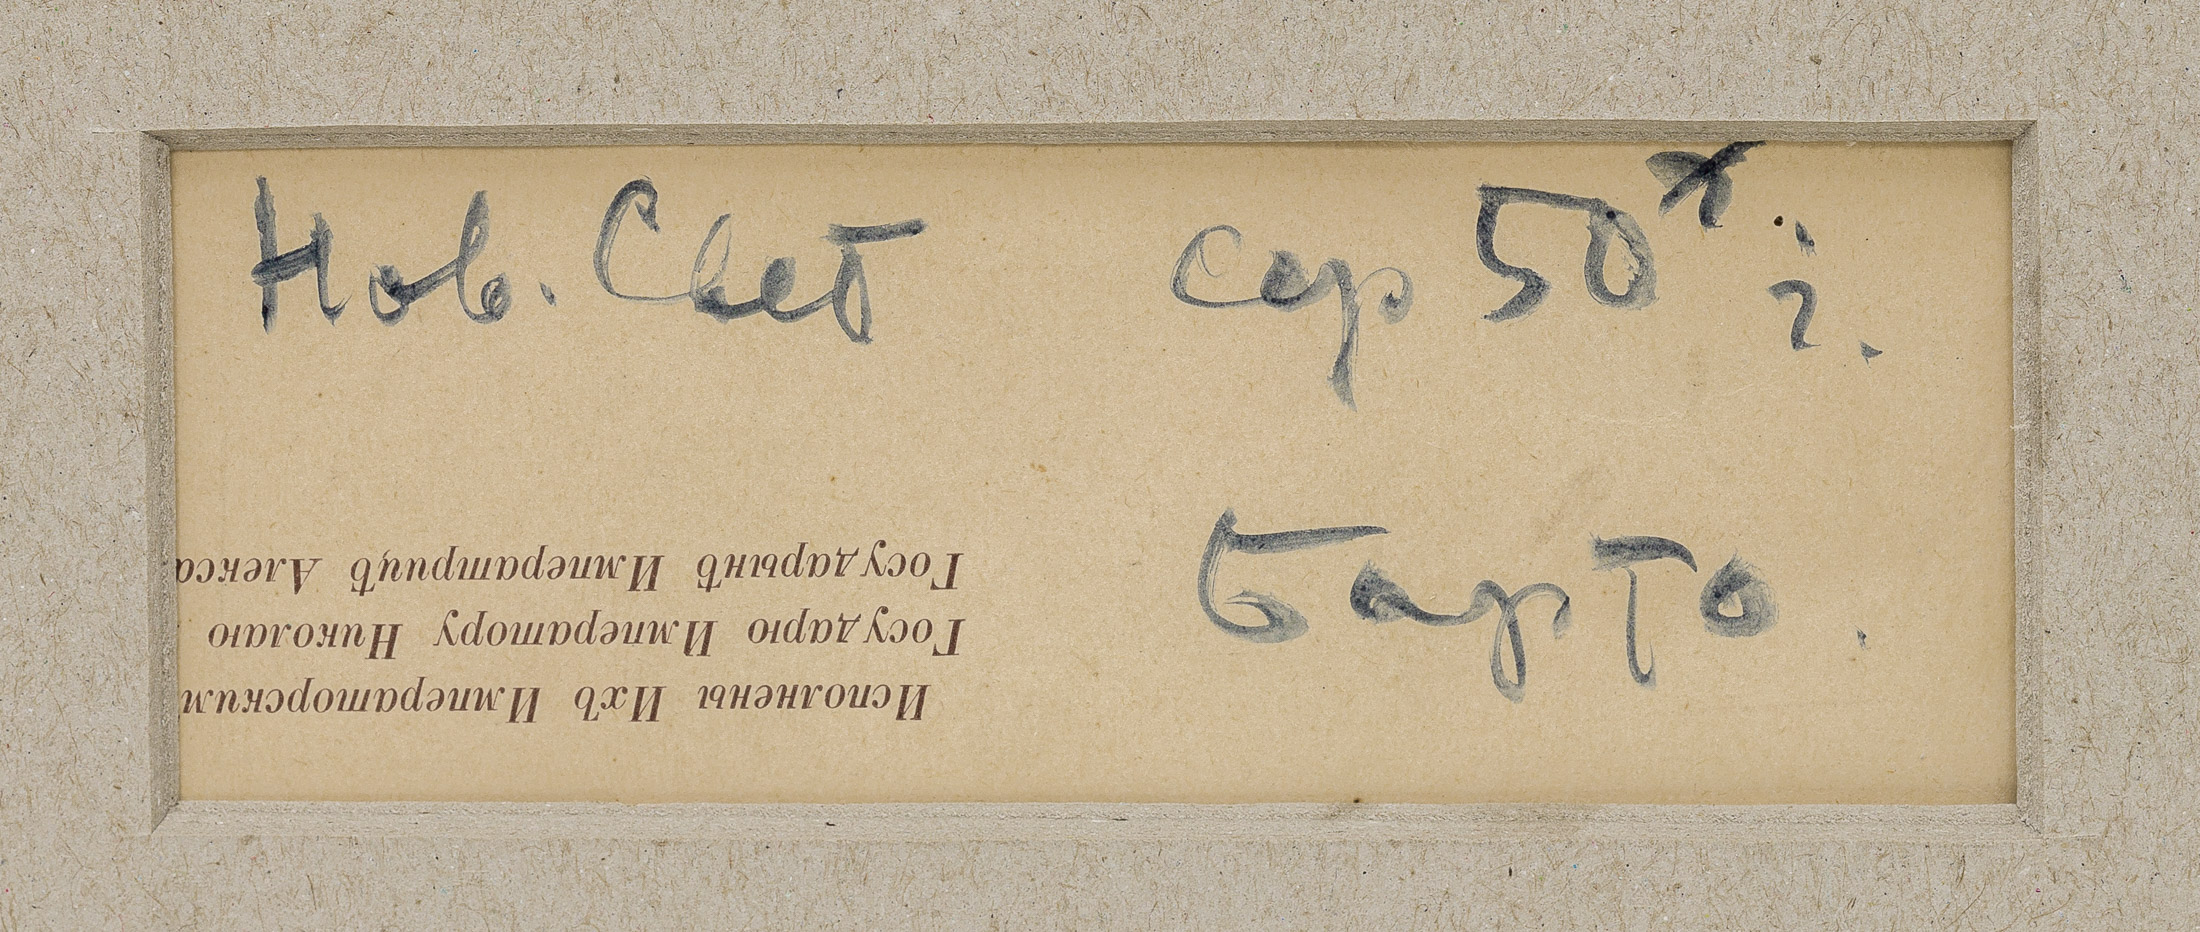 Нов. Свет сер 50х г.
Барто.
Исполнены Ихъ Императорским
Государю Императору Николаю
Государынѣ Императрицѣ Алекса